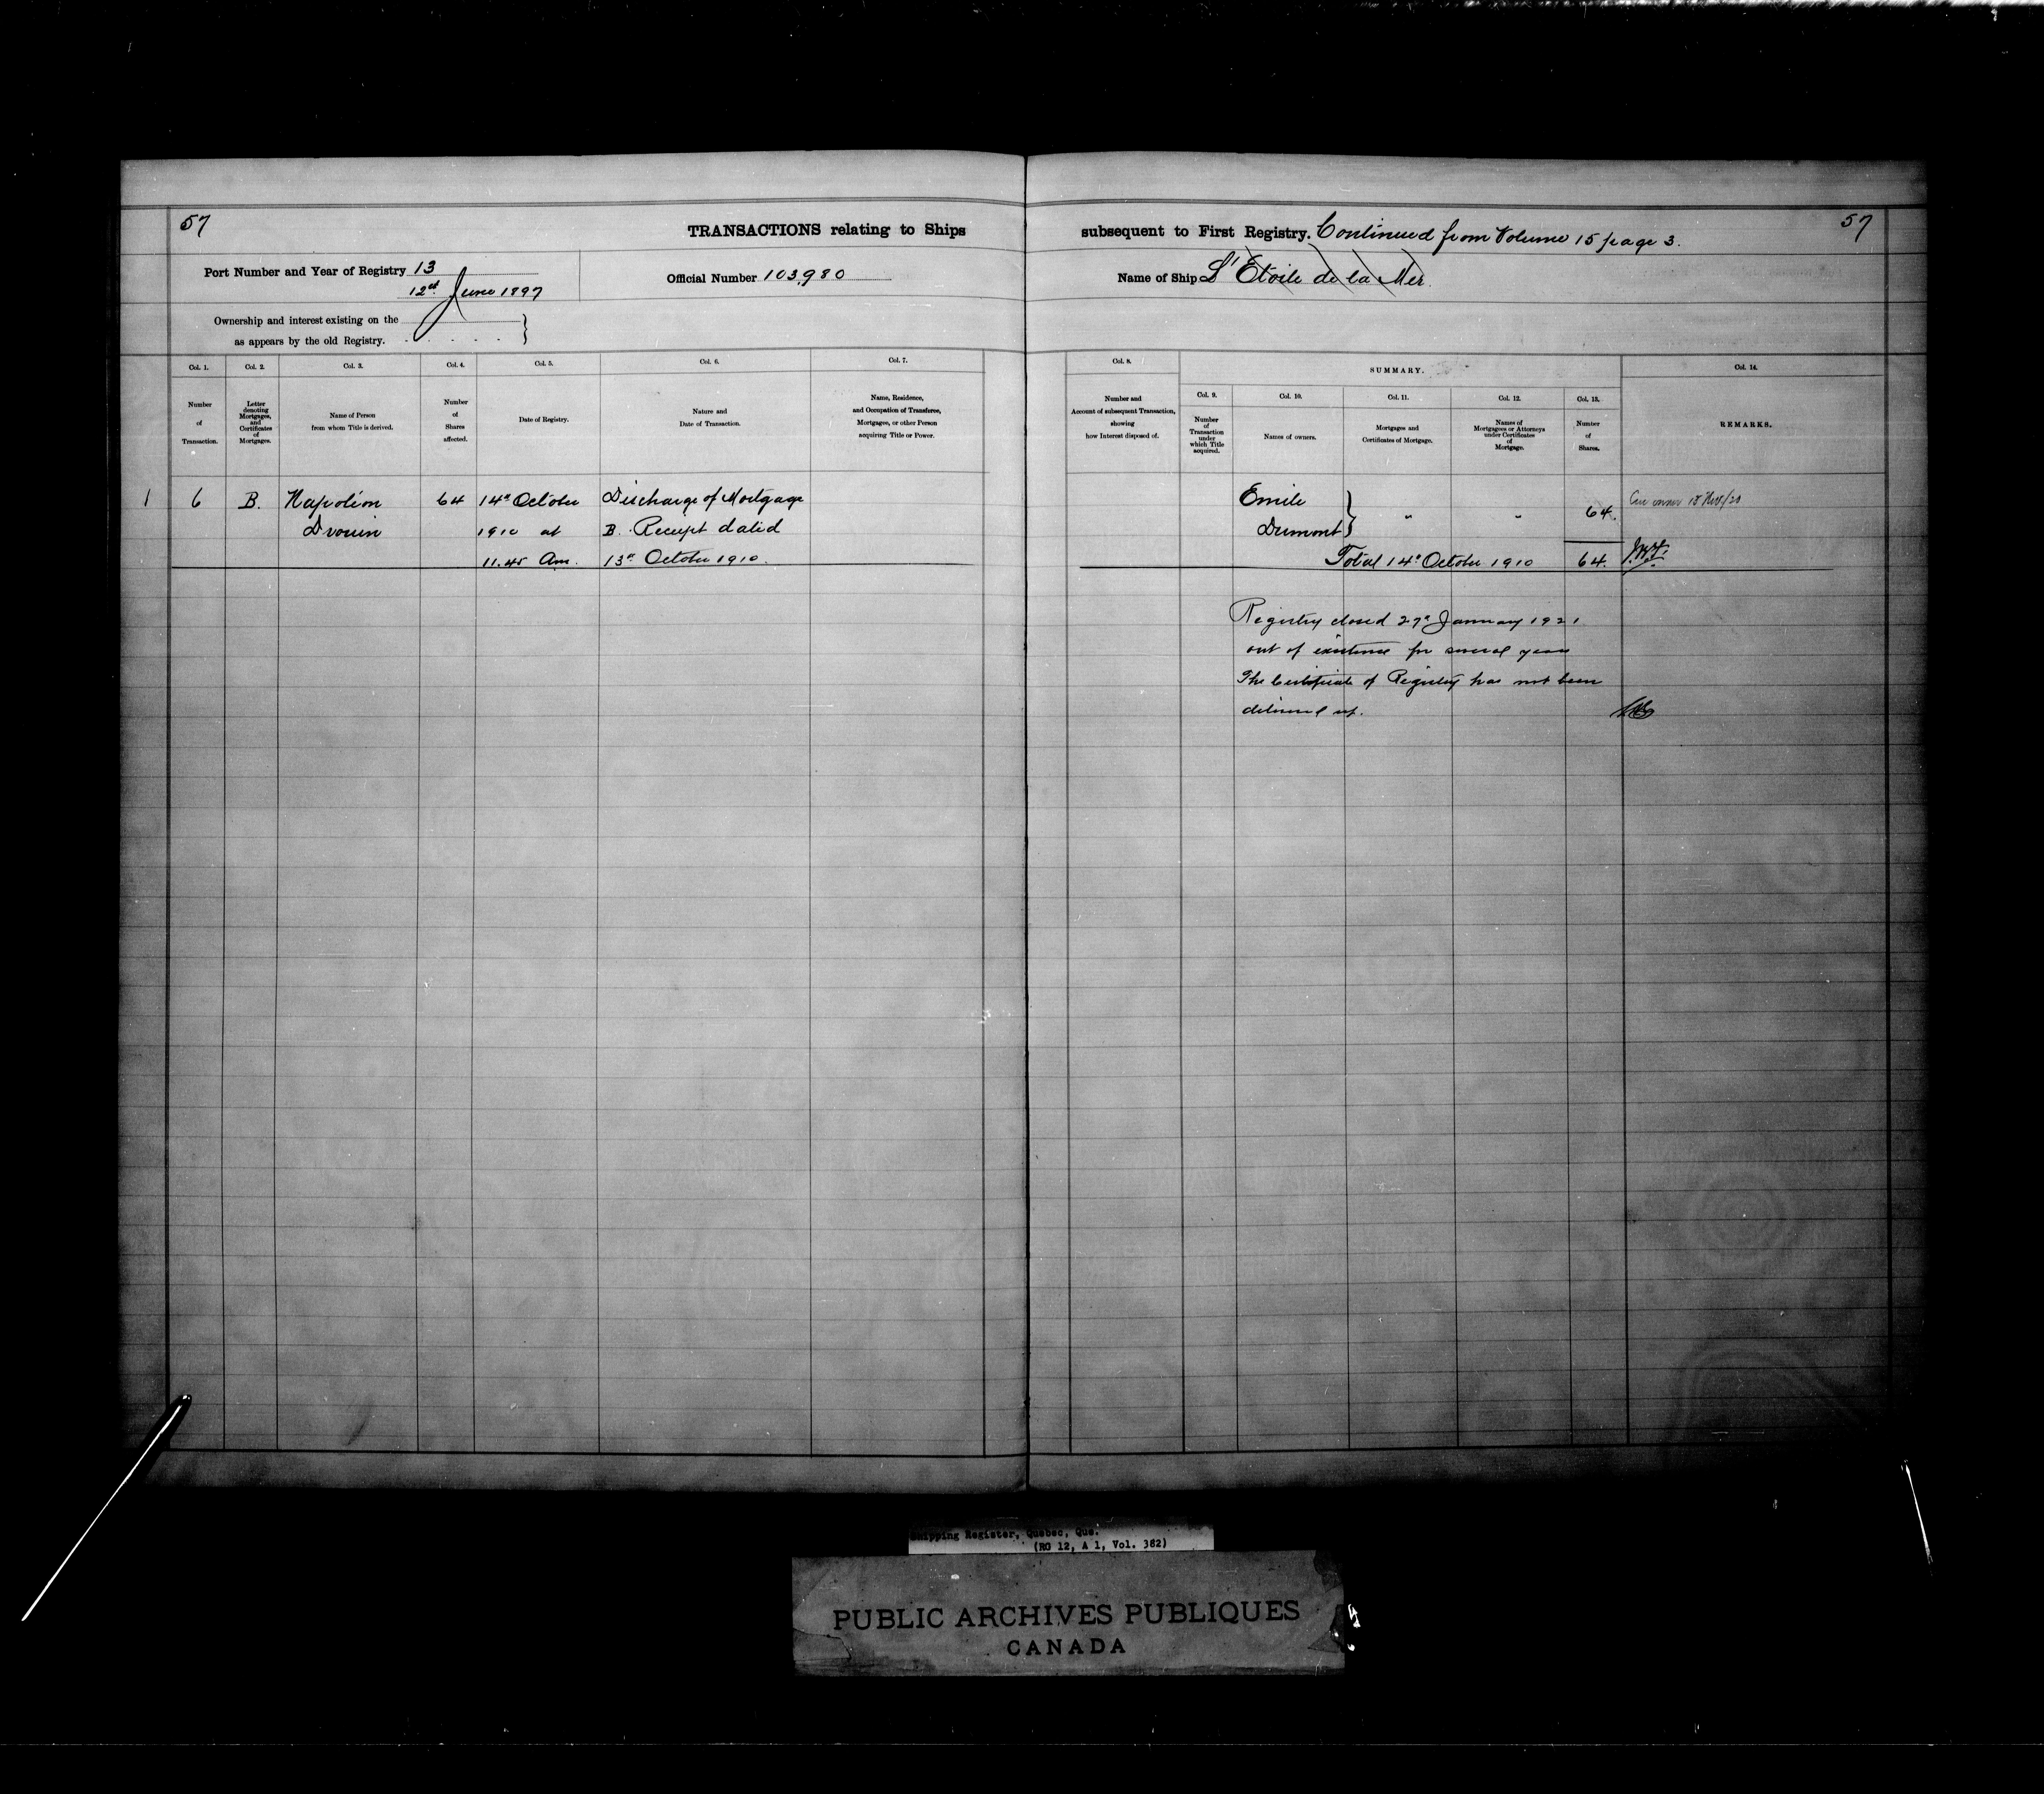 57
TRANSACTIONS relating to Ships
subsequent to First Registry. Continued from Volume 15 page 3.
57
Port Number and Year of Registry 13
12th June 1897
Official Number 103,980
Name of Ship L'Etoile de la Mer
Ownership and interest existing on the
as appears by the old Registry.
Col. 1.
Number
of
Transaction.
Col. 2.
Letter
denoting
Mortgages,
and
Certificates
of
Mortgages.
Col. 3.
Name of Person
from whom Title is derived.
Col. 4.
Number
of
Shares
affected.
Col. 5.
Date of Registry.
Col. 6.
Nature and
Date of Transaction.
Col. 7.
Name, Residence,
and Occupation of Transferee,
Mortgagee, or other Person
acquiring Title or Power.
Col. 8.
Number and
Account of subsequent Transaction,
showing
how Interest disposed of.
SUMMARY.
Col. 9.
Number
of
Transaction
under
which Title
acquired.
Col. 10.
Names of owners.
Col. 11.
Mortgages and
Certificates of Mortgage.
Col. 12.
Names of
Mortgagees or Attorneys
under Certificates
of
Mortgage.
Col. 13.
Number
of
Shares.
Col. 14.
REMARKS.
1 6 B. Napoléon 64 14th October Discharge of Mortgage
Drouin 1910 at B. Receipt dated
11.45 Am. 13th October 1910.
Emile
Dumont } " " 64.
Total 14th October 1910 64.
Registry closed 27th January 1921
out of existence for several years
The Certificate of Registry has not been
delivered up.
Shipping Register, Quebec, Que.
(RG 12, A 1, Vol. 382)
PUBLIC ARCHIVES PUBLIQUES
CANADA